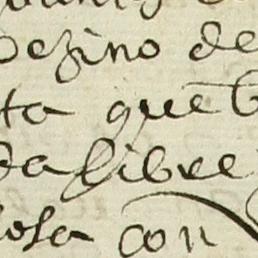 vezino de
ta que
da libre
losa con